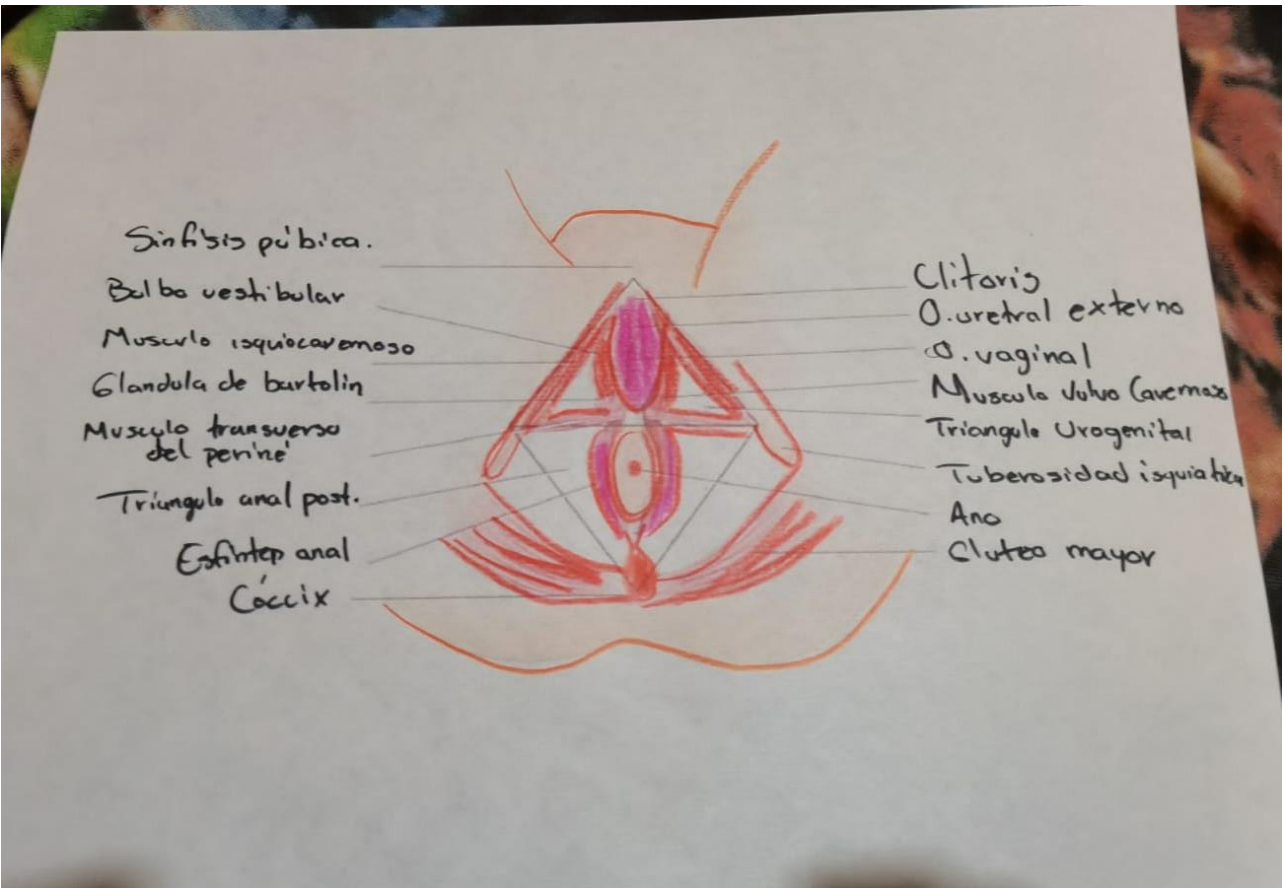 Sínfisis púbica.
Bulbo vestibular
Musculo isquiocavernoso
Glandula de bartolin
Musculo transverso
del periné
Triangulo anal post.
Esfinter anal
Cóccix
Clitoris
O.uretral externo
O. vaginal
Musculo Vulvo Cavernoso
Triangulo Urogenital
Tuberosidad isquiatica
Ano
Gluteo mayor